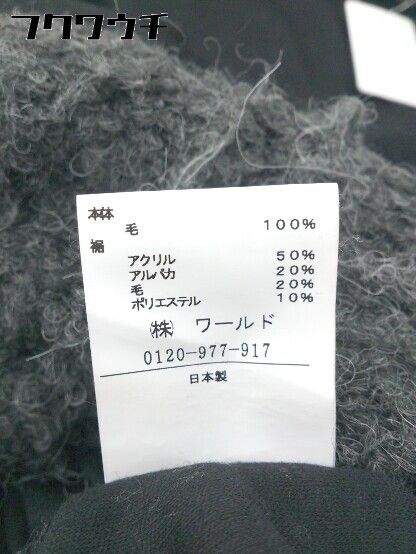 フクワウチ
本体
毛 100%
裾
アクリル 50%
アルパカ 20%
毛 20%
ポリエステル 10%
㈱ ワールド
0120-977-917
日本製